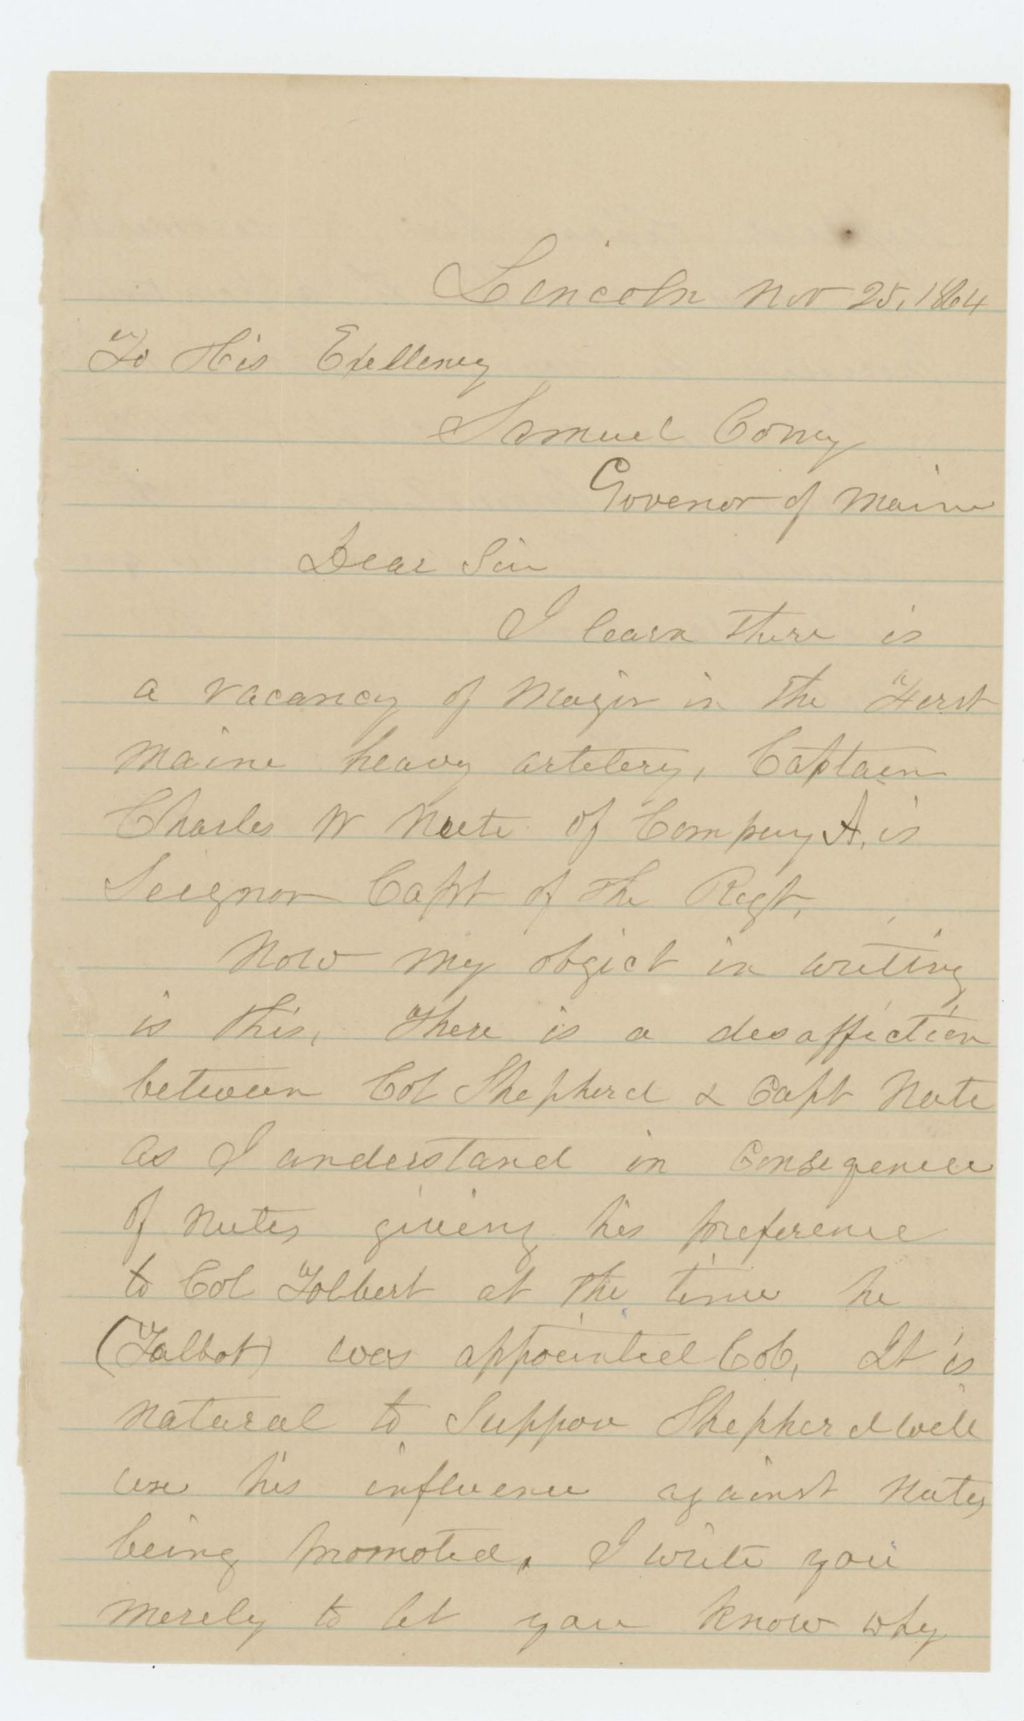 Lincoln Nov 25, 1864
To His Exellency
Samuel Cony
Govenor of Maine
Dear Sir
I learn there is
a vacancy of Majir in the Ferst
Maine heavy artelery, Captain
Charles W Nute of Company A, is
Seignor Capt of the Regt,
Now my objict in writing
is this, There is a desaffiction
between Col Shepherd & Capt Nute
as I understand in Conseqenece
of Nutes giveing his preference
to Col Tolbert at the time he
(Talbot) was appointed Col, It is
natural to Suppou Shepherd will
use his influence against Nutes
being promoted. I write you
merely to let you know why